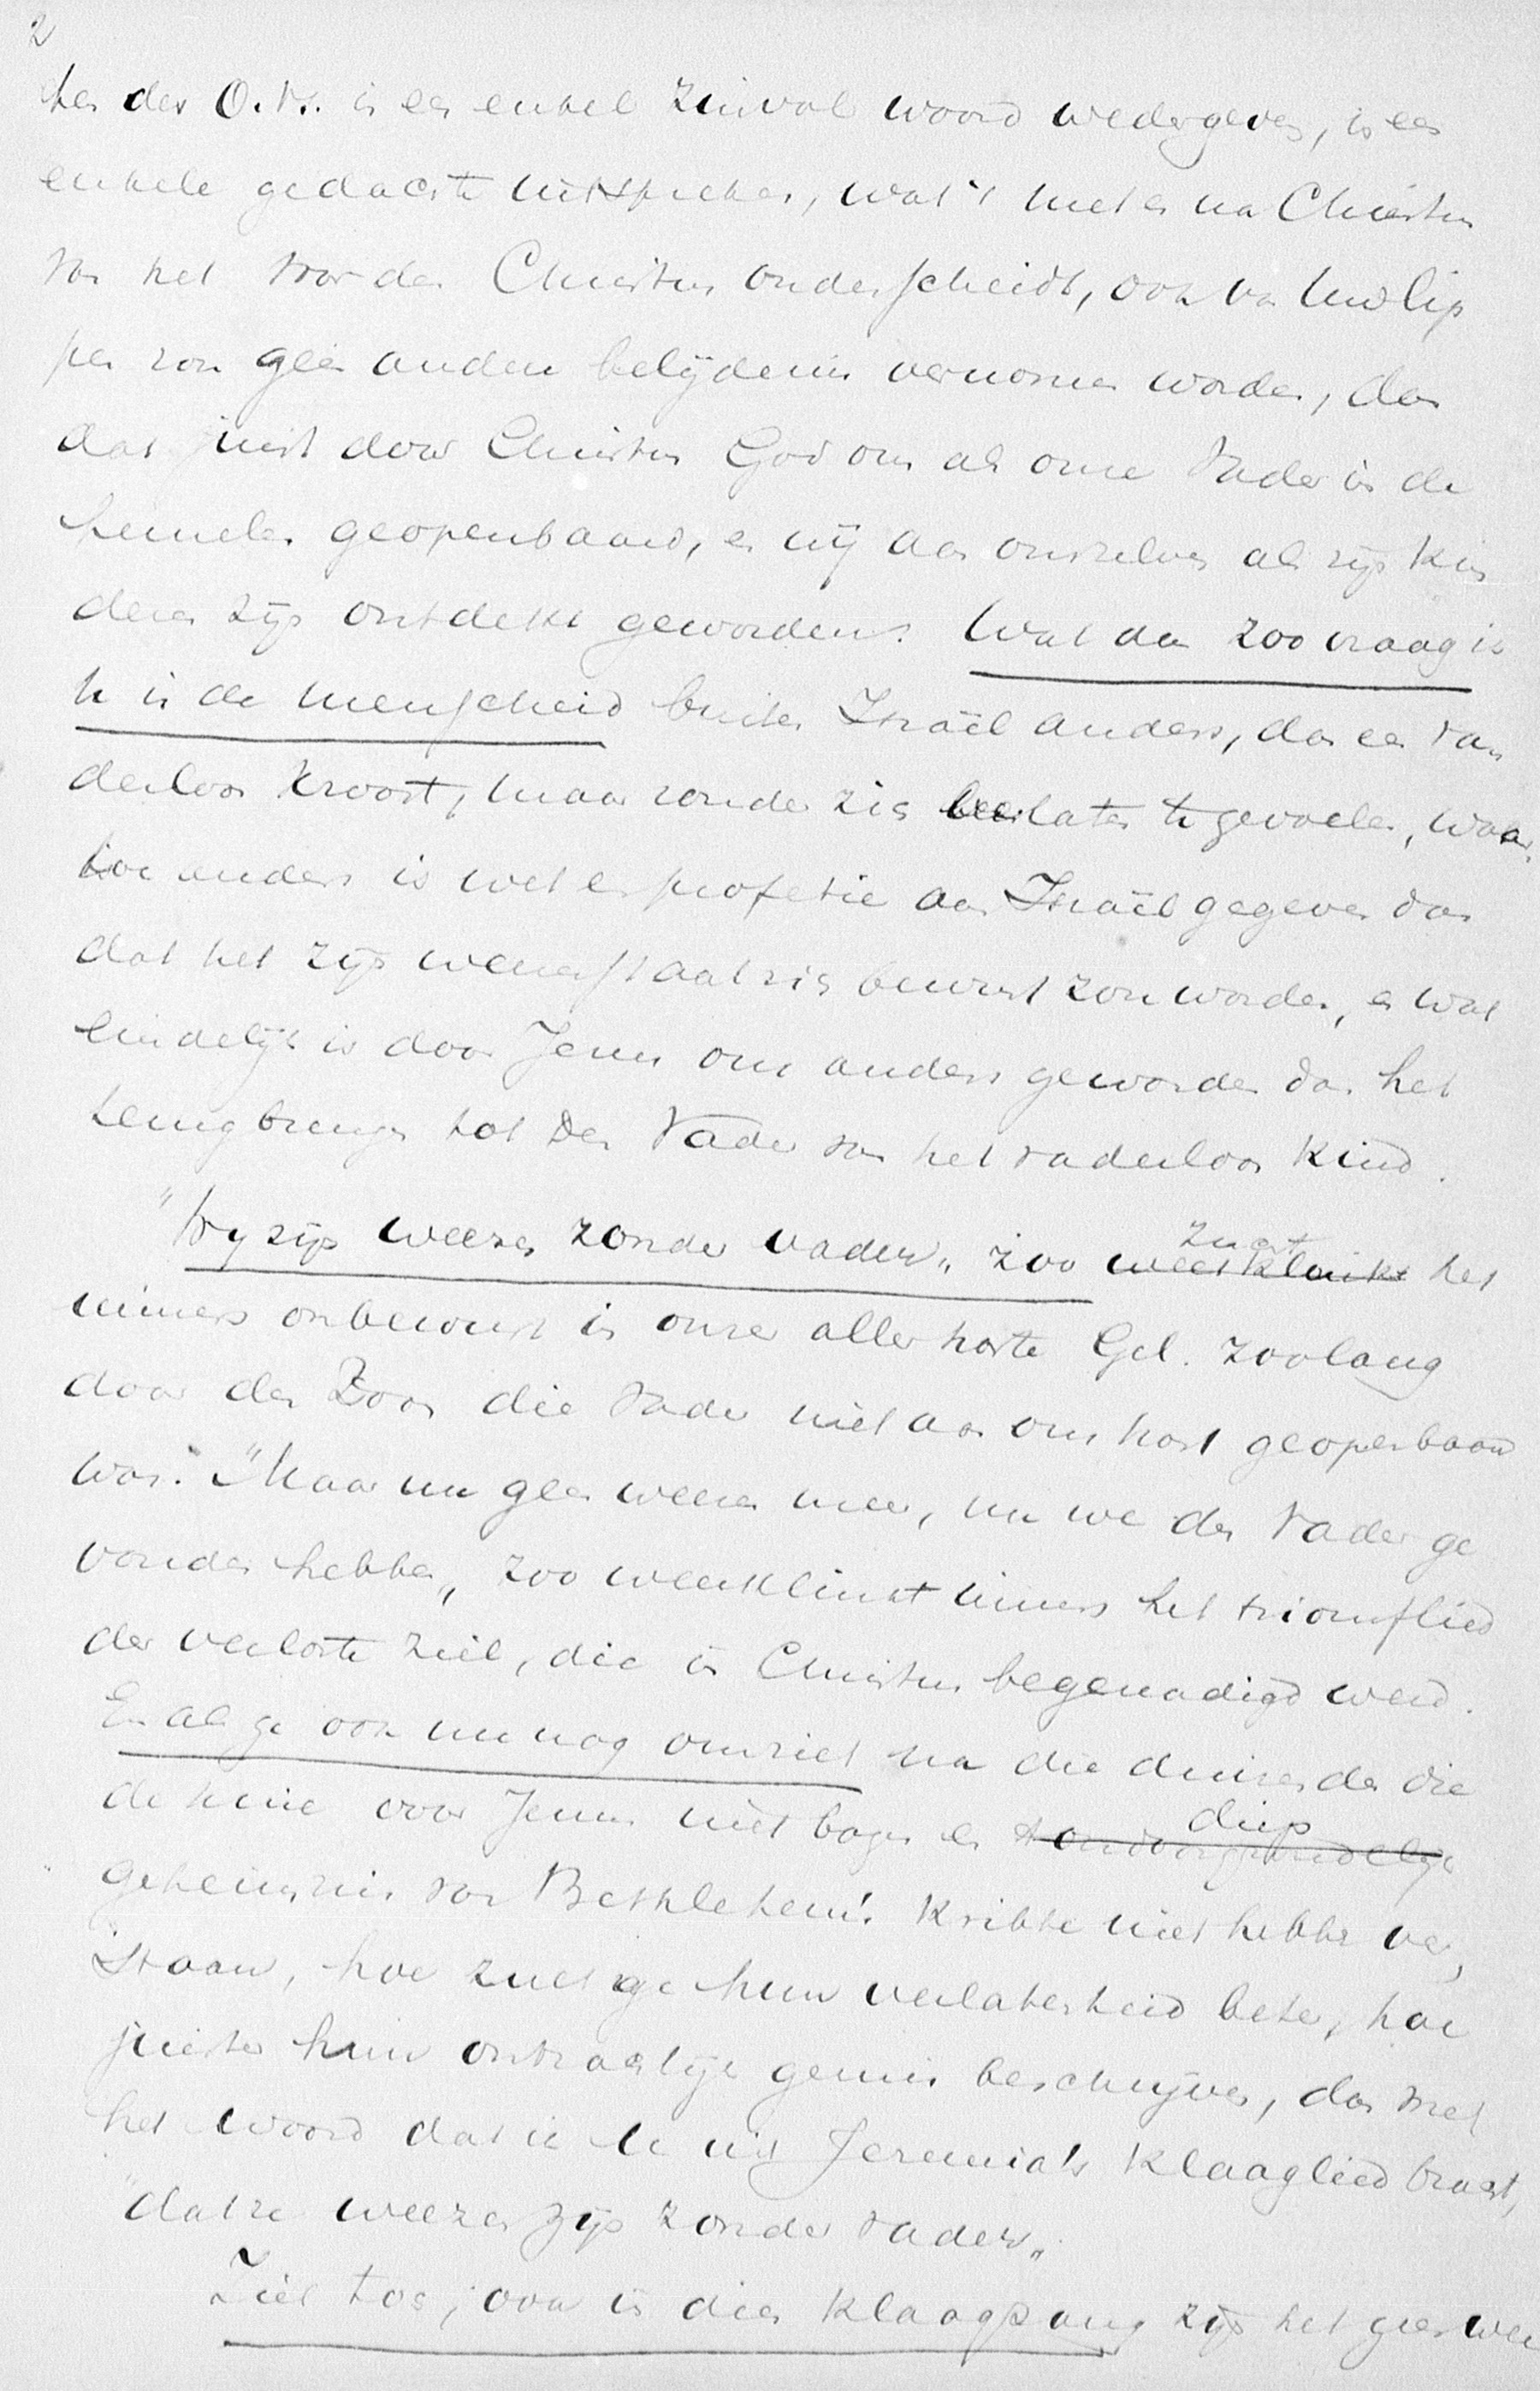 2
ken des O.Vs. in een enkel zinvol woord wedergeven, in een
enkele gedachte uitspreken, wat 't met en na Christus
van het voor den Christus onderscheidt, ook van Uw lip
pen zou geen andere belijdenis vernomen worden, dan
dat juist door Christus God ons als onze Vader in de
hemelen geopenbaard, en wij aan onszelven als zijn kin
deren zijn ontdekt geworden. Wat dan zoo vraag ik
U is de menscheid buiten Israël anders, dan een va
derloos kroost, maar zonder zich verlaten te gevoelen, waar
toe anders is wet en profetie aan Israël gegeven dan
dat het zijn weenstaat zich bewust zou worden, en wat
eindelijk is door Jezus ons anders geworden dan het
terugbrengen tot den Vader van het vaderloos kind.
"Wy zijn weezen zonder vader„ zoo zucht het
immers onbewust in onze aller harte Gel. zoolang
door den Zoon die Vader niet aan ons hart geopenbaard
was. "Maar nu geen weezen meer, nu we den Vader ge
vonden hebben„ zoo weerklinkt immers het triomflied
der verloste ziel, die in Christus begenadigd werd.
En als ge ook nu nog omziet na die duizenden die
de knie voor Jezus niet bogen en diep
geheimnis van Bethlehem's kribbe niet hebben ver
staan, hoe zult ge hun verlatenheid beter, hoe
juister hun ontzachlijk gemis beschrijven, dan met
het woord dat ik U uit Jeremia's klaaglied bracht,
"dat ze weezen zijn zonder vader„
Ziet toe, ook in dien klaagzang zijn het geen wee